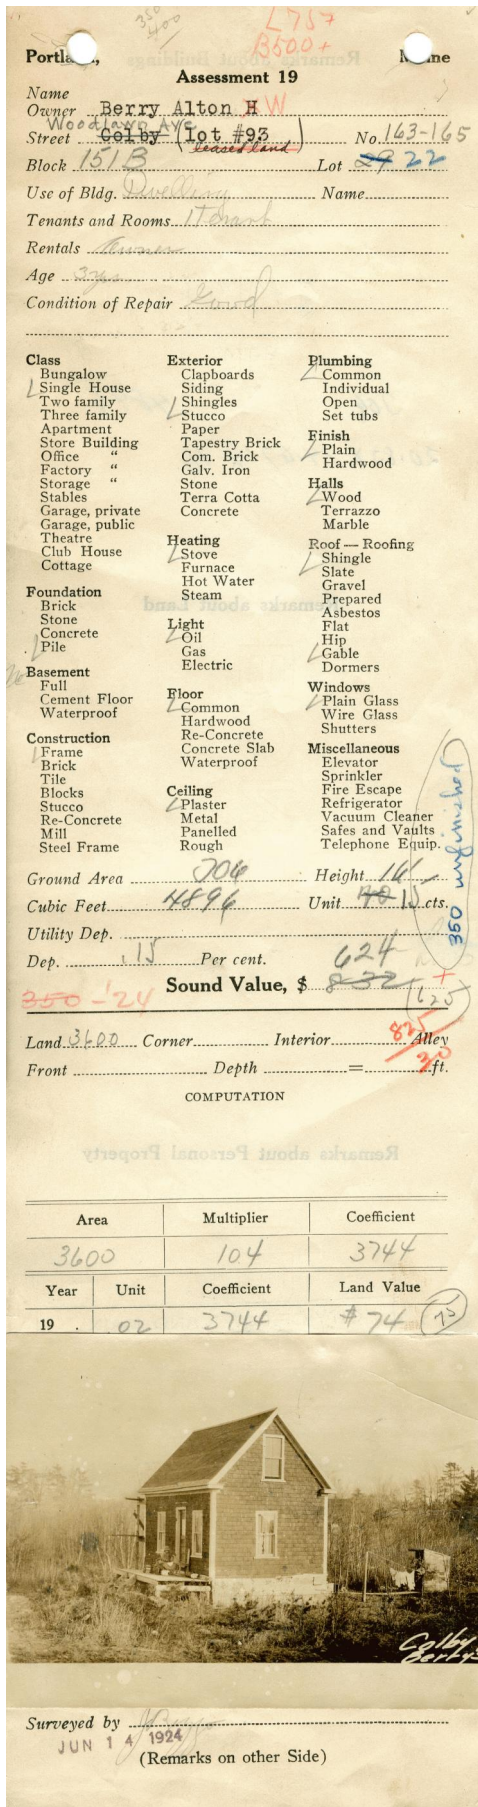 350
400
L 75+
B500+
Portland, Maine
Assessment 19
Name
Owner Berry Alton H W
Woodlawn Ave
Street Colby (lot #93) No. 163-165
leased land
Block 151B Lot 29 22
Use of Bldg. Dwelling Name
Tenants and Rooms 1 Tenant
Rentals Owner
Age 3 yrs
Condition of Repair Good
Class
Bungalow
Single House
Two family
Three family
Apartment
Store Building
Office "
Factory "
Storage "
Stables
Garage, private
Garage, public
Theatre
Club House
Cottage
Foundation
Brick
Stone
Concrete
Pile
Basement
No
Full
Cement Floor
Waterproof
Construction
Frame
Brick
Tile
Blocks
Stucco
Re-Concrete
Mill
Steel Frame
Exterior
Clapboards
Siding
Shingles
Stucco
Paper
Tapestry Brick
Com. Brick
Galv. Iron
Stone
Terra Cotta
Concrete
Heating
Stove
Furnace
Hot Water
Steam
Light
Oil
Gas
Electric
Floor
Common
Hardwood
Re-Concrete
Concrete Slab
Waterproof
Ceiling
Plaster
Metal
Panelled
Rough
Plumbing
Common
Individual
Open
Set tubs
Finish
Plain
Hardwood
Halls
Wood
Terrazzo
Marble
Roof — Roofing
Shingle
Slate
Gravel
Prepared
Asbestos
Flat
Hip
Gable
Dormers
Windows
Plain Glass
Wire Glass
Shutters
Miscellaneous
Elevator
Sprinkler
Fire Escape
Refrigerator
Vacuum Cleaner
Safes and Vaults
Telephone Equip.
350 unfinished
Ground Area 306 Height 16'
Cubic Feet 4896 Unit 20 15 cts.
Utility Dep.
Dep. .15 Per cent. 624
Sound Value, $ 832 +
350 - '24 625
825
Land 3600 Corner Interior Alley
Front Depth = ft.
COMPUTATION
Area Multiplier Coefficient
3600 104 3744
Year Unit Coefficient Land Value
19 . 02 3744 $ 74 75
Colby
Berry
Surveyed by
JUN 14 1924
(Remarks on other Side)